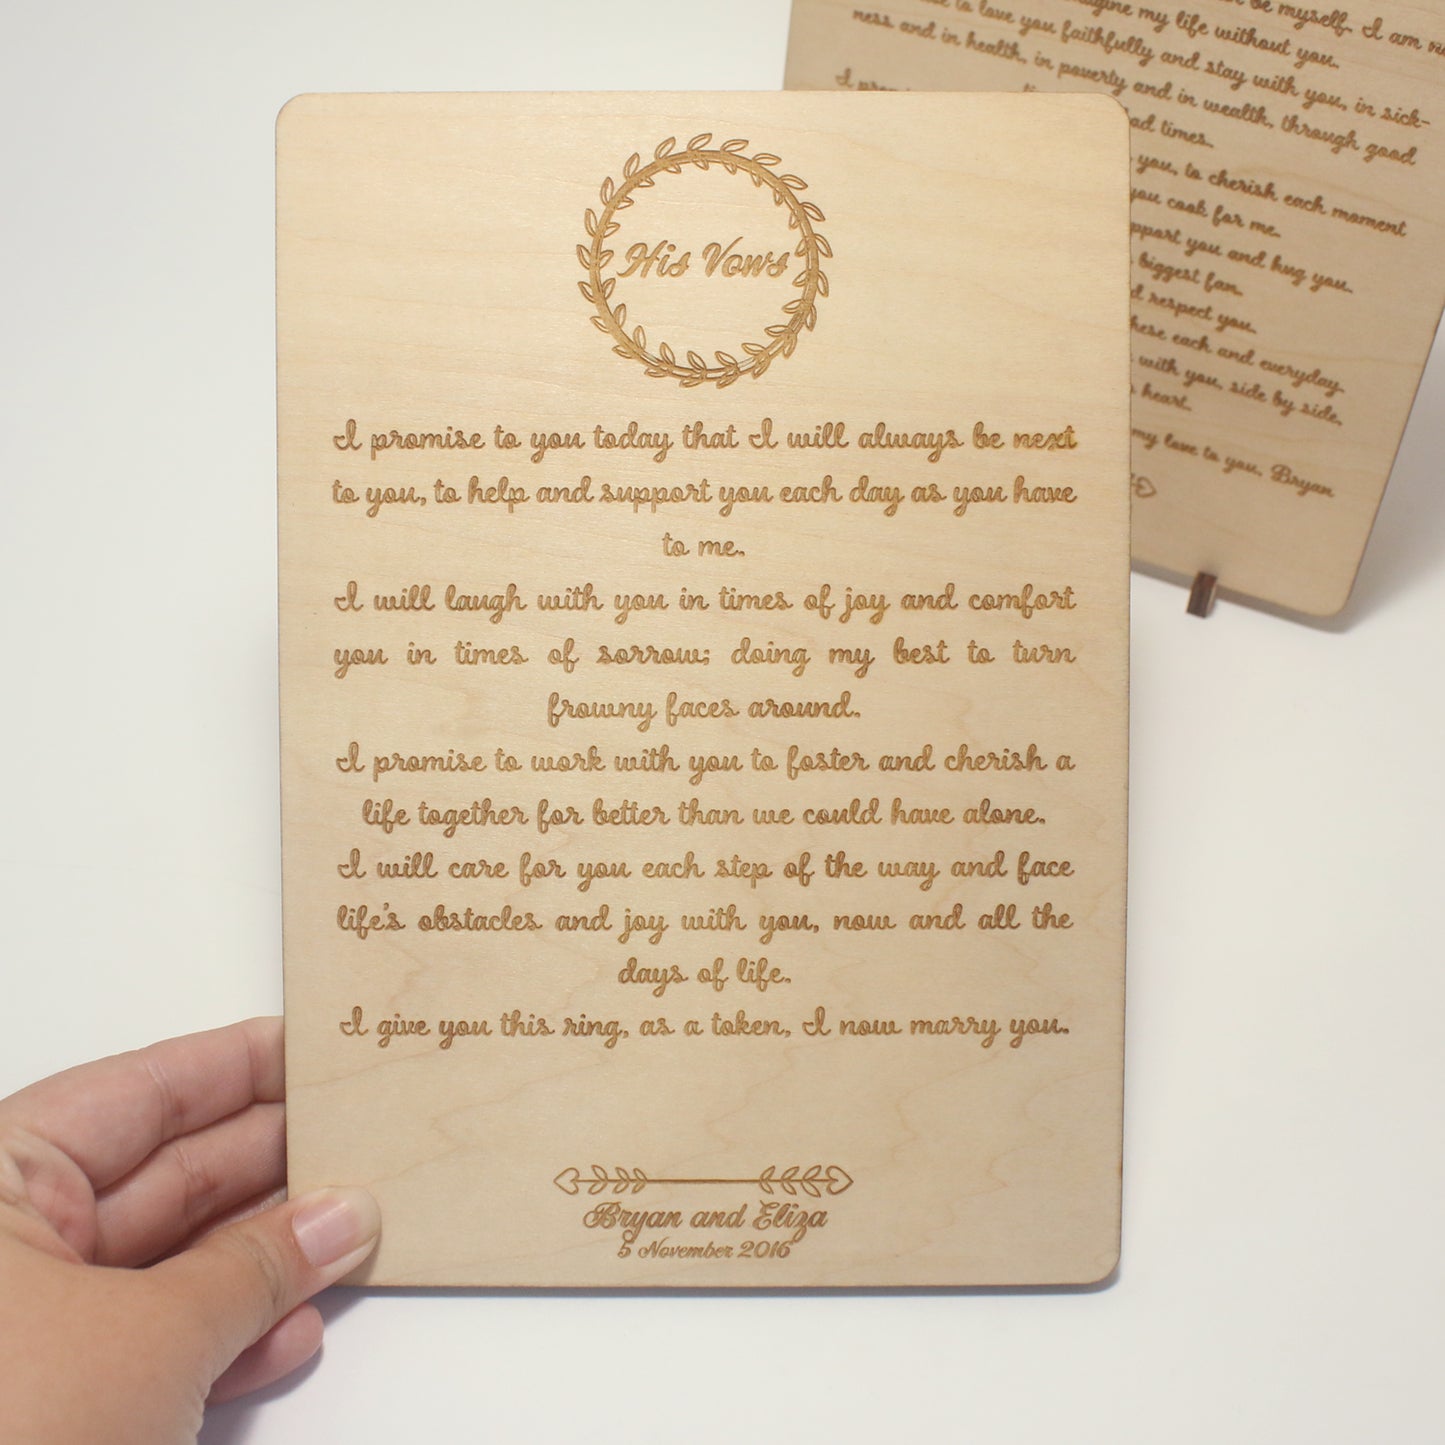 His Vows
I promise to you today that I will always be next
to you, to help and support you each day as you have
to me.
I will laugh with you in times of joy and comfort
you in times of sorrow; doing my best to turn
frowny faces around.
I promise to work with you to foster and cherish a
life together for better than we could have alone.
I will care for you each step of the way and face
life's obstacles and joy with you, now and all the
days of life.
I give you this ring, as a token, I now marry you.
Bryan and Eliza
5 November 2016
be myself. I am
my life without you.
to love you faithfully and stay with you, in sick-
ness and in health, in poverty and in wealth, through good
I
times.
you, to cherish each moment
you cook for me.
you and hug you.
biggest fan.
respect you.
each and everyday.
with you, side by side,
heart.
my love to you, Bryan